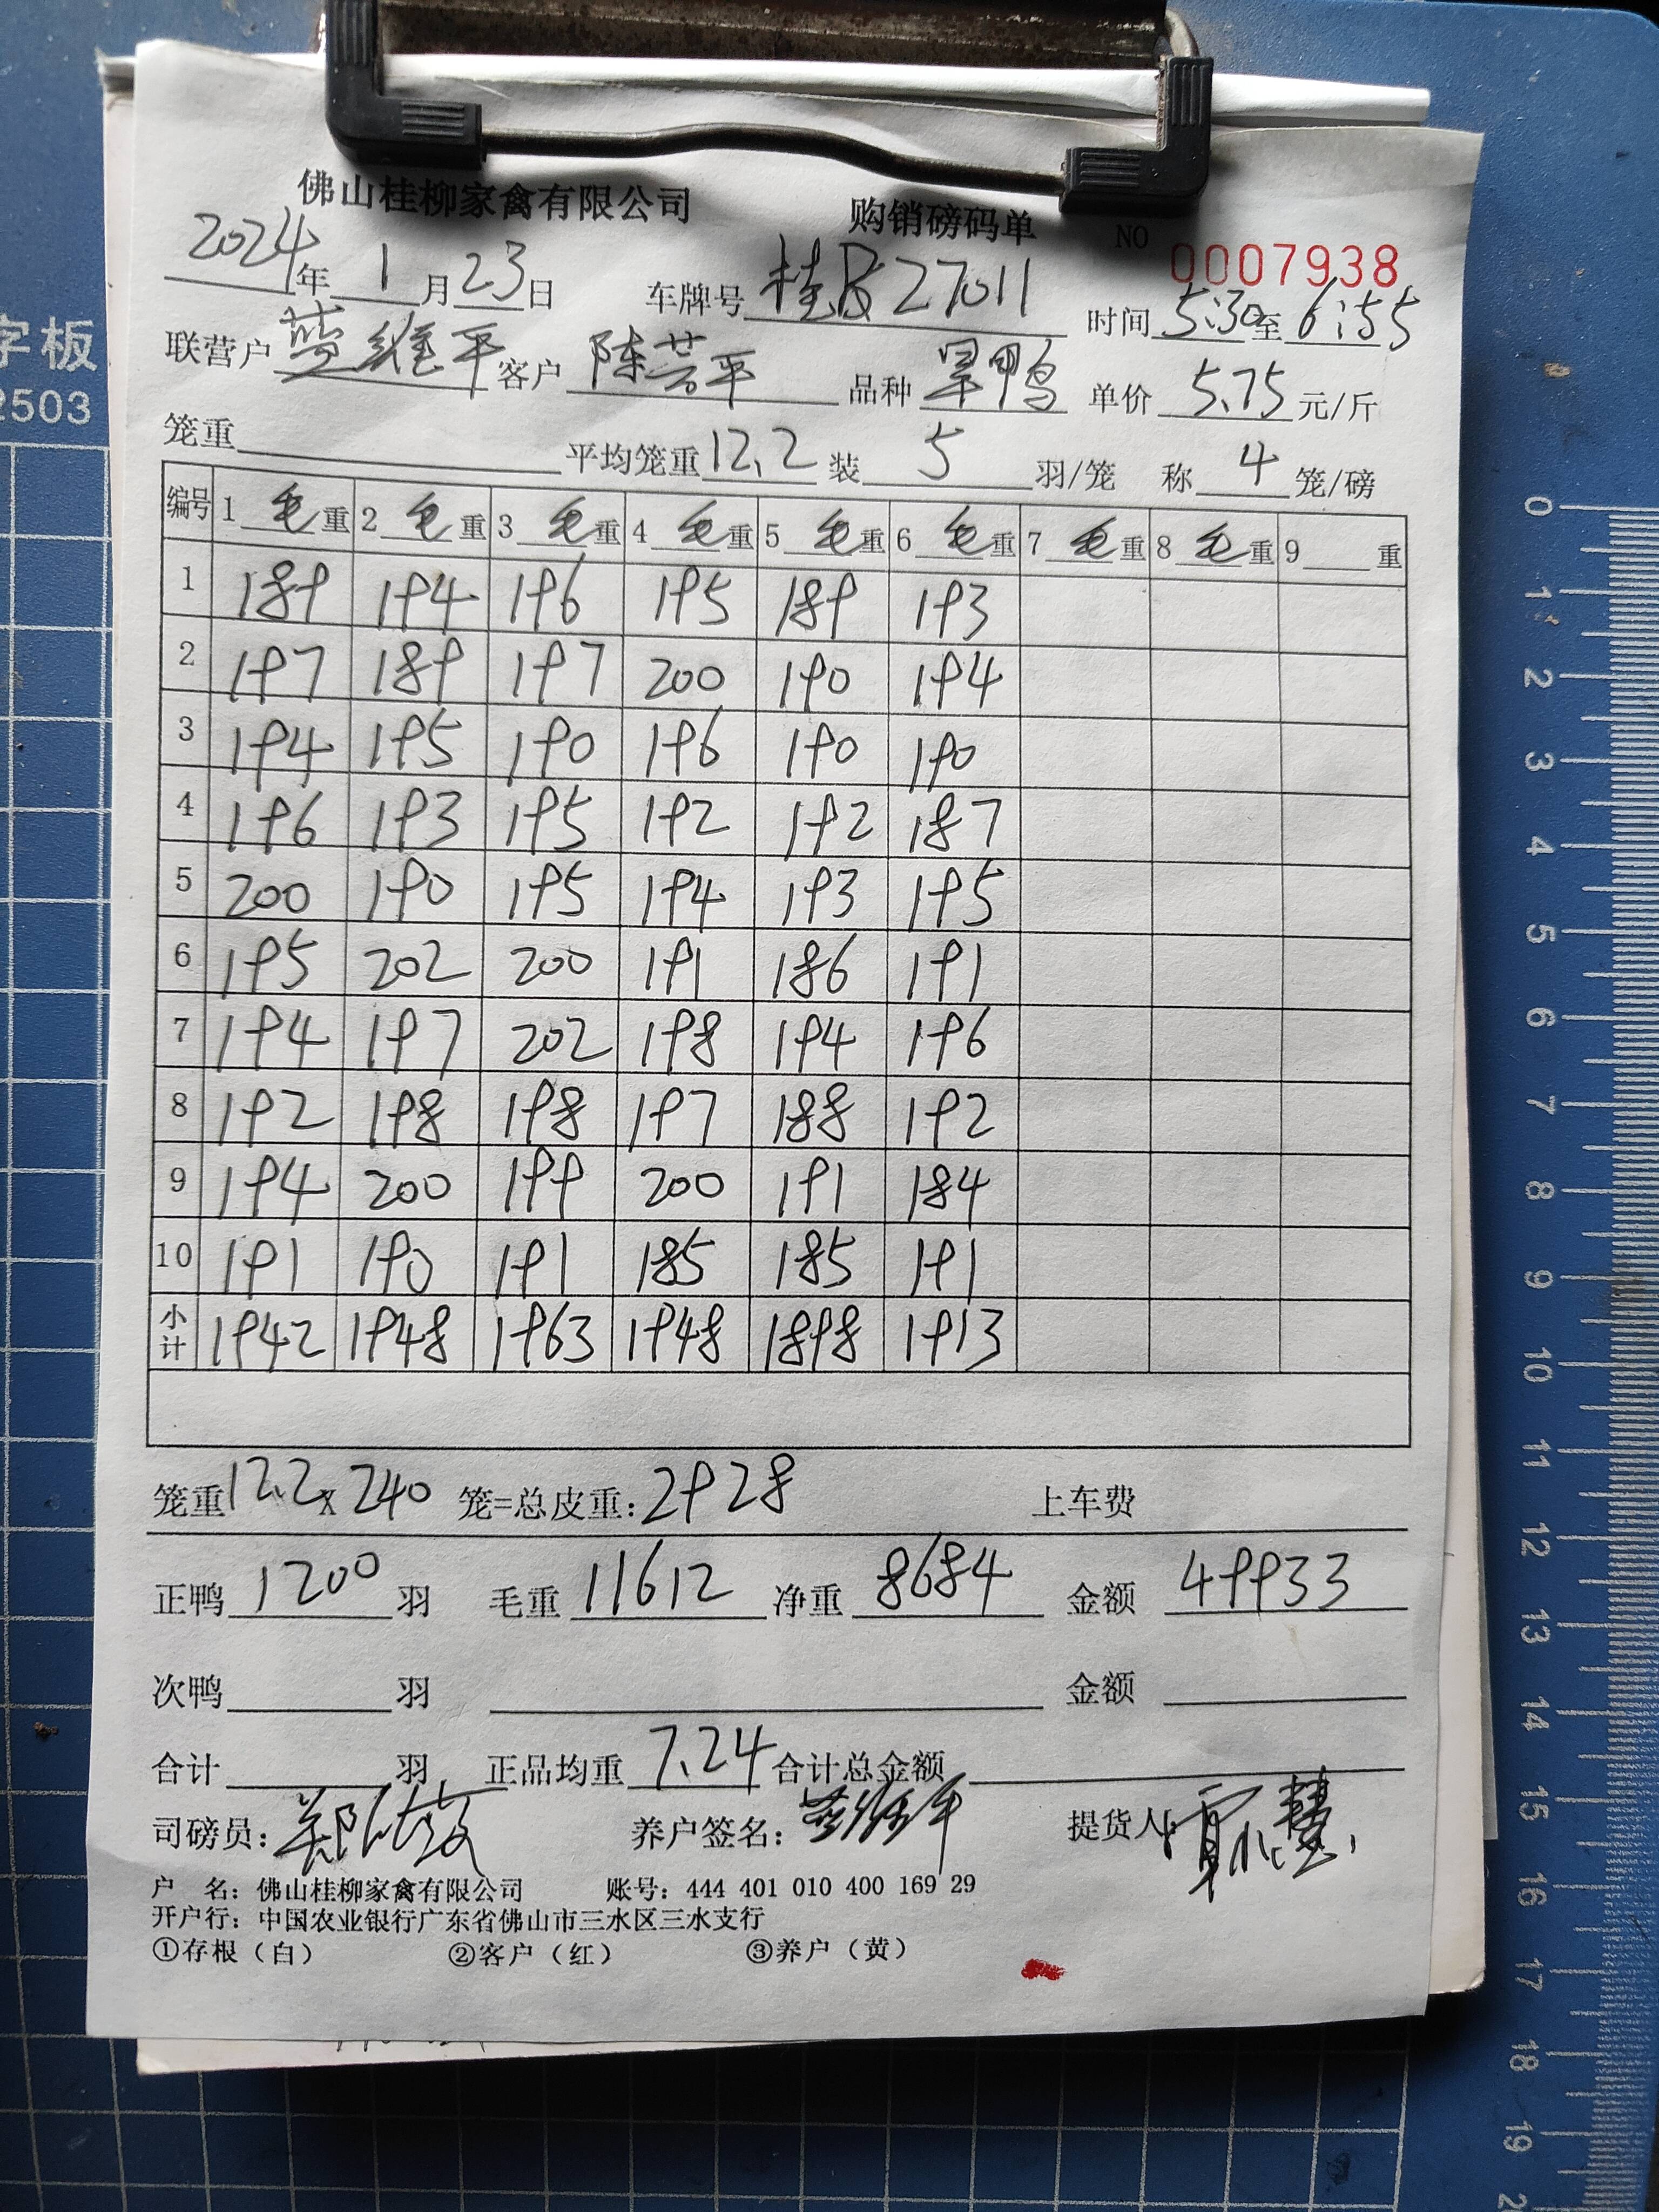 佛山桂柳家禽有限公司 购销磅码单 NO 0007938
2024年1月23日 车牌号 桂R27011 时间 5:30至6:55
联营户 蓝维平 客户 陈芳平 品种 旱鸭 单价 5.75 元/斤
笼重 平均笼重12.2装 5 羽/笼 称 4 笼/磅
编号 1毛重 2毛重 3毛重 4毛重 5毛重 6毛重 7毛重 8毛重 9 重
1 189 194 196 195 189 193
2 197 189 197 200 190 194
3 194 195 190 196 190 190
4 196 193 195 192 192 187
5 200 190 195 194 193 195
6 195 202 200 191 186 191
7 194 197 202 198 194 196
8 192 198 198 197 188 192
9 194 200 199 200 191 184
10 191 190 191 185 185 191
小计 1942 1948 1963 1948 1898 1913
笼重12.2x240 笼=总皮重:2928 上车费
正鸭 1200 羽 毛重 11612 净重 8684 金额 49933
次鸭 羽 金额
合计 羽 正品均重 7.24 合计总金额
司磅员: 养户签名: 提货人:
户 名: 佛山桂柳家禽有限公司 账号: 444 401 010 400 169 29
开户行: 中国农业银行广东省佛山市三水区三水支行
①存根（白） ②客户（红） ③养户（黄）
字板
2503
0
1
2
3
4
5
6
7
8
9
10
11
12
13
14
15
16
17
18
19